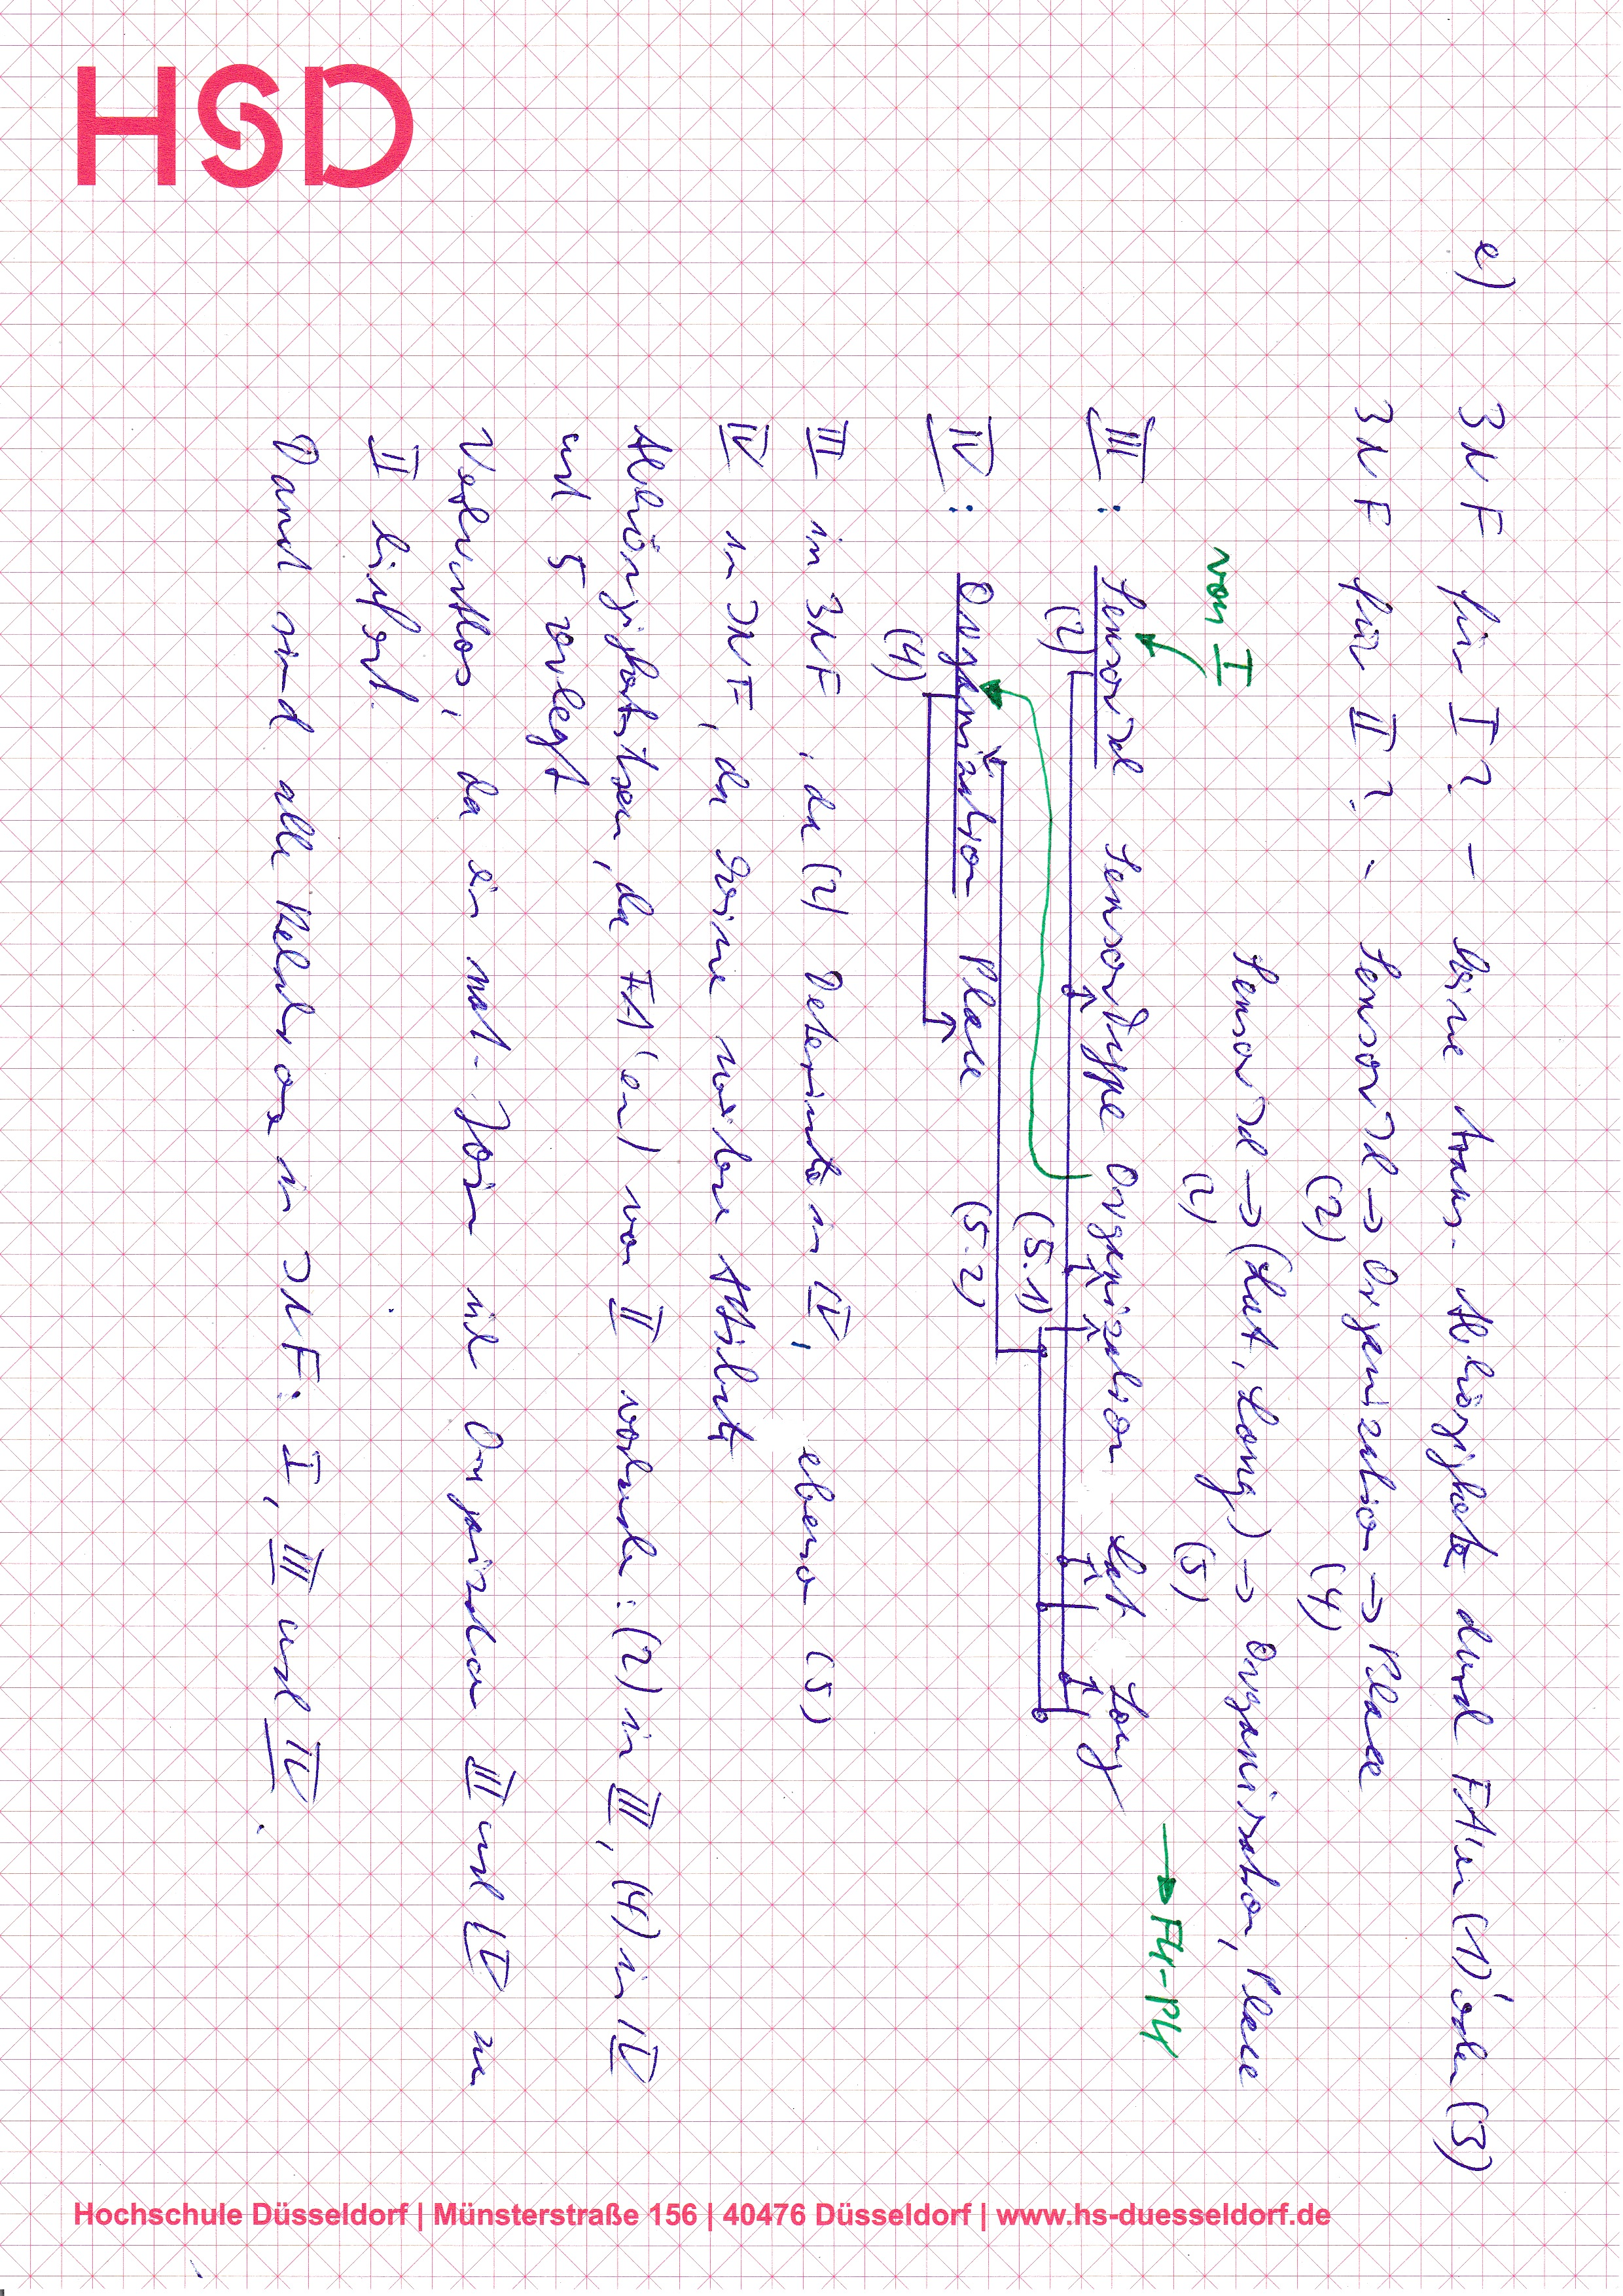 HSD
e) 3NF für I? – keine trans. Abhängigkeit durch FA'en (1) oder (3)
3NF für II? : SensorId → Organization → Place
(2) (4)
SensorId → (Lat, Long) → Organisation, Place
(2) (5)
von I
→ FK-PK
III : SensorId SensorType Organization Lat Long
(2)
(5.1)
IV : Organization Place (5.2)
(4)
III in 3NF, da (4) Determinante in IV, ebenso (5)
IV in 3NF, da keine weitere Attribute
Abhängigkeitstreu, da FA(en) von II vorhanden: (2) in III, (4) in IV
und 5 zerlegt
Verlustlos, da ein nat. Join mit Organization III und IV zu
II liefert.
Damit sind alle Relationen in 3NF: I, III und IV.
Hochschule Düsseldorf | Münsterstraße 156 | 40476 Düsseldorf | www.hs-duesseldorf.de